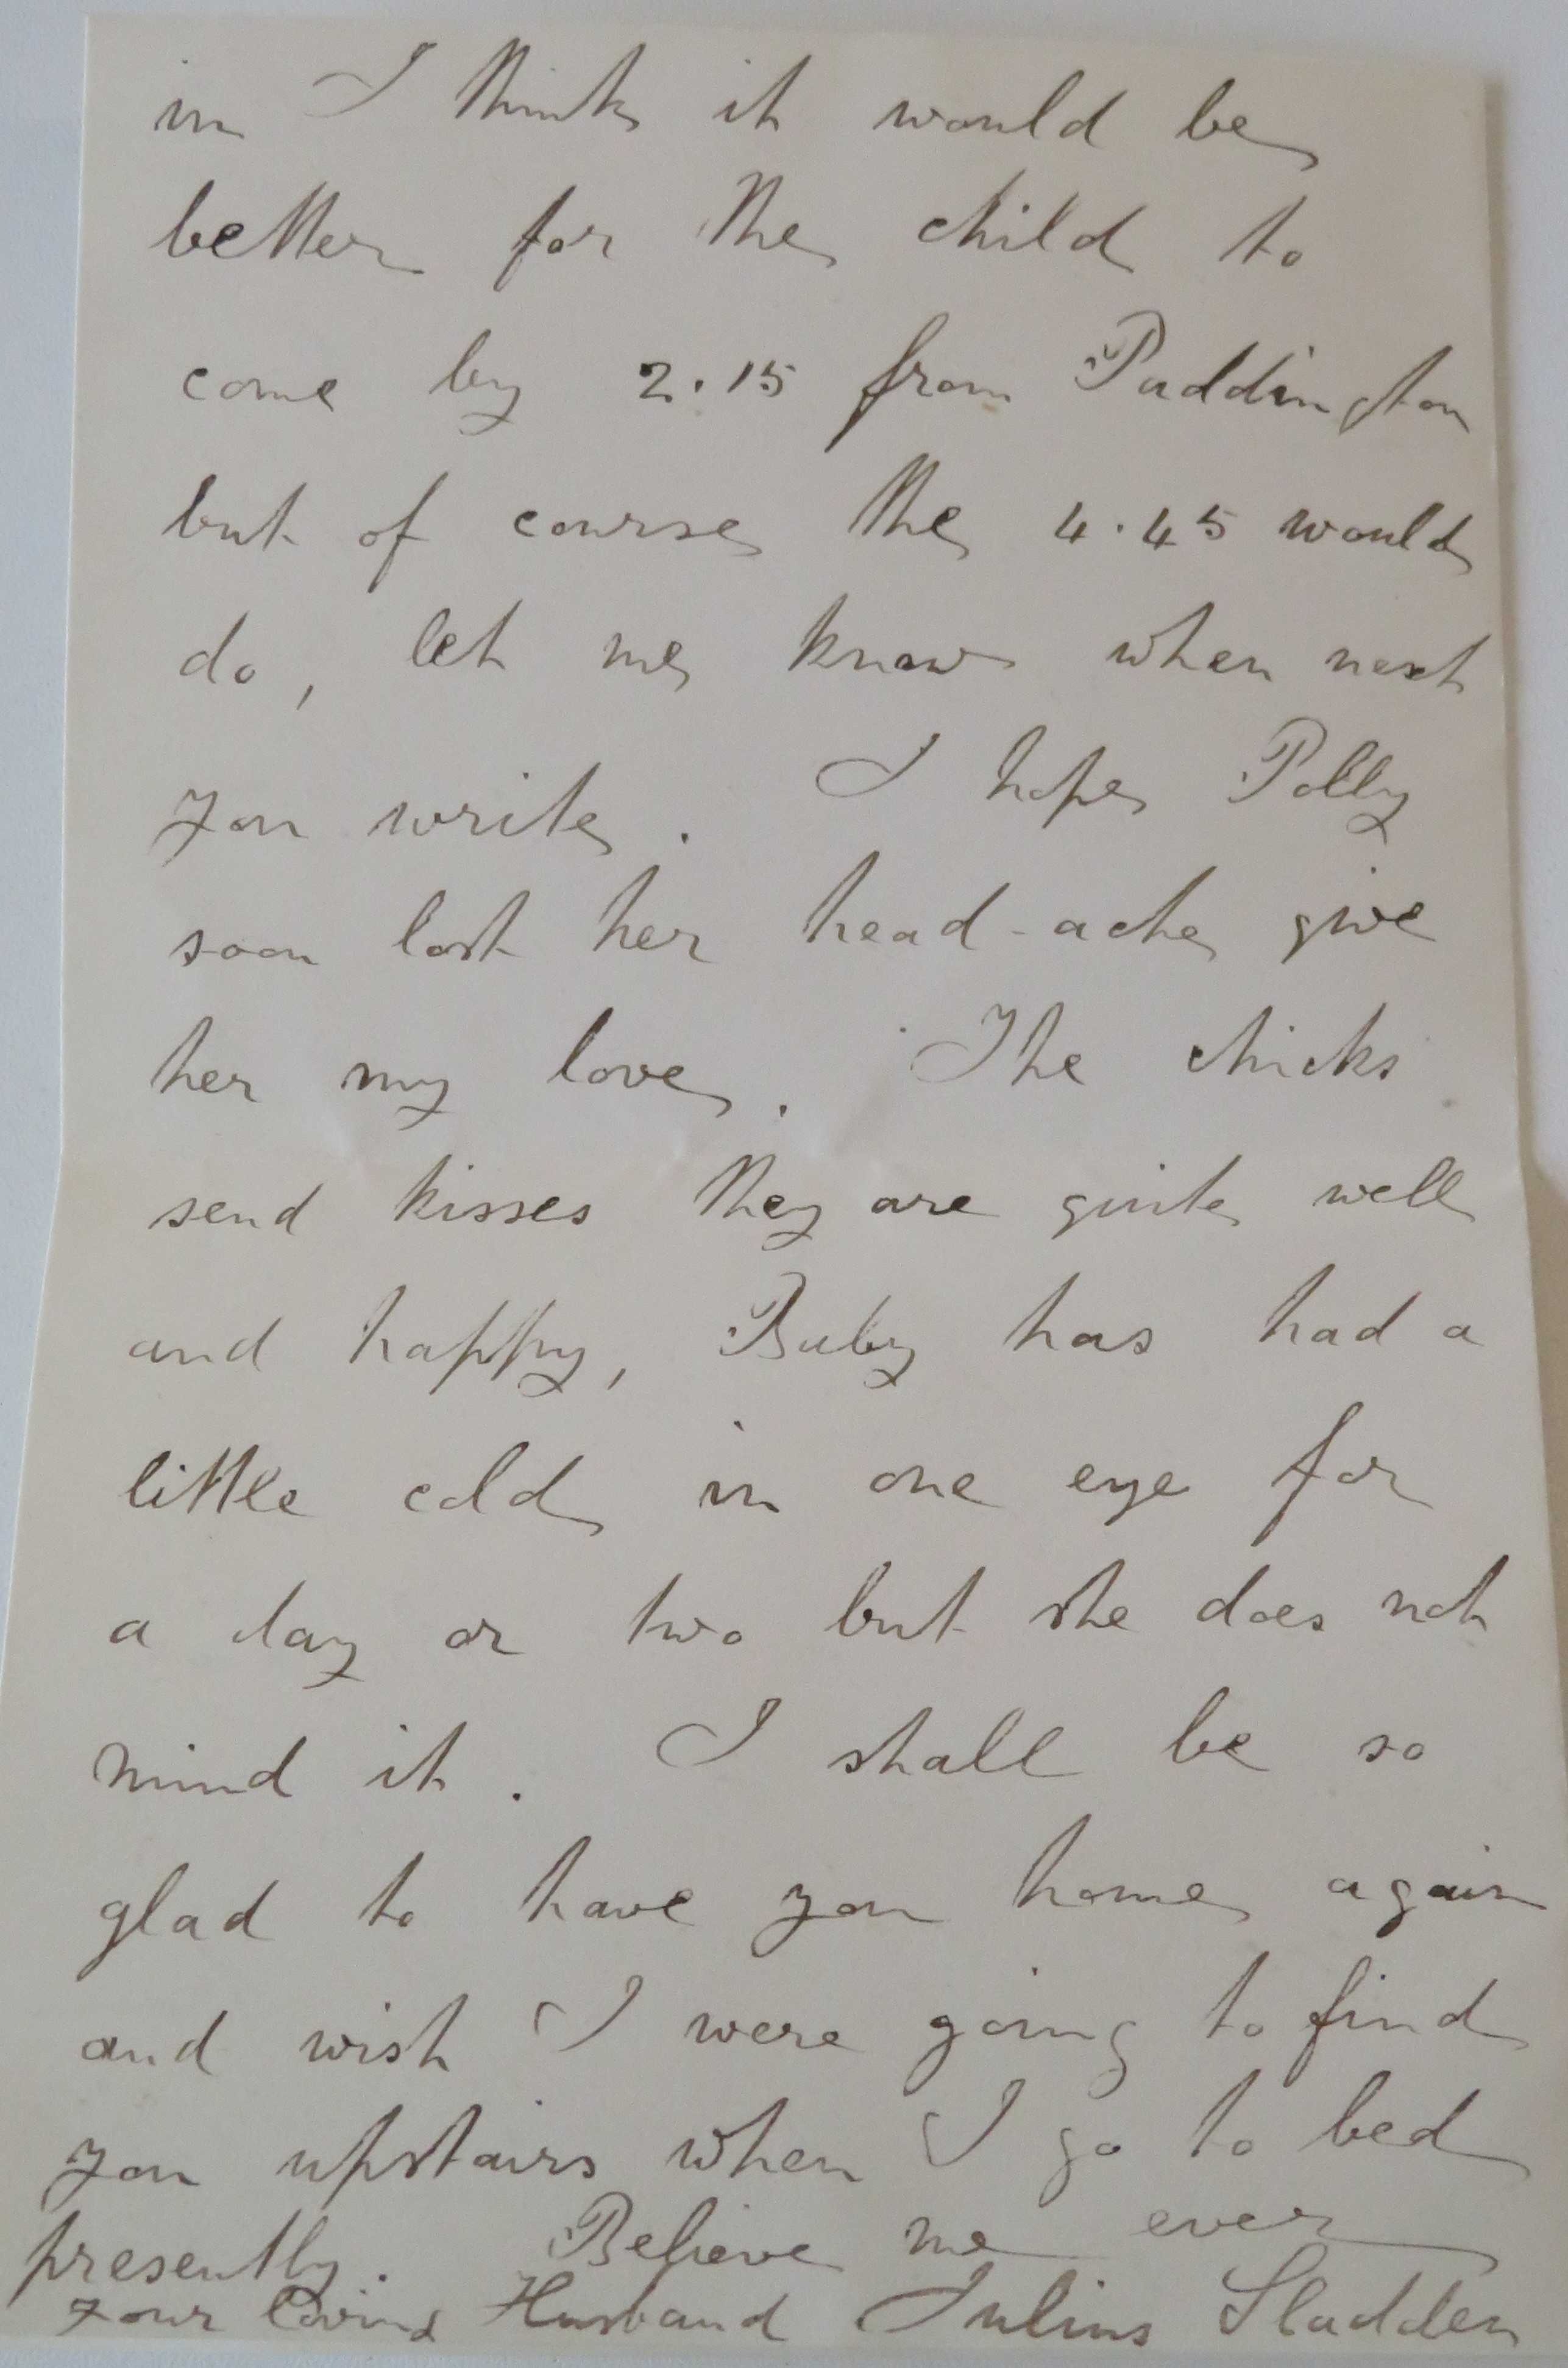 in I think it would be
better for the child to
come by 2.15 from Paddington
but of course the 4.45 would
do, let me know when next
you write. I hope Polly
soon lost her head-ache give
her my love. The chicks
send kisses they are quite well
and happy, Baby has had a
little cold in one eye for
a day or two but she does not
mind it. I shall be so
glad to have you home again
and wish I were going to find
you upstairs when I go to bed
presently. Believe me ever
your loving Husband Julius Sladden